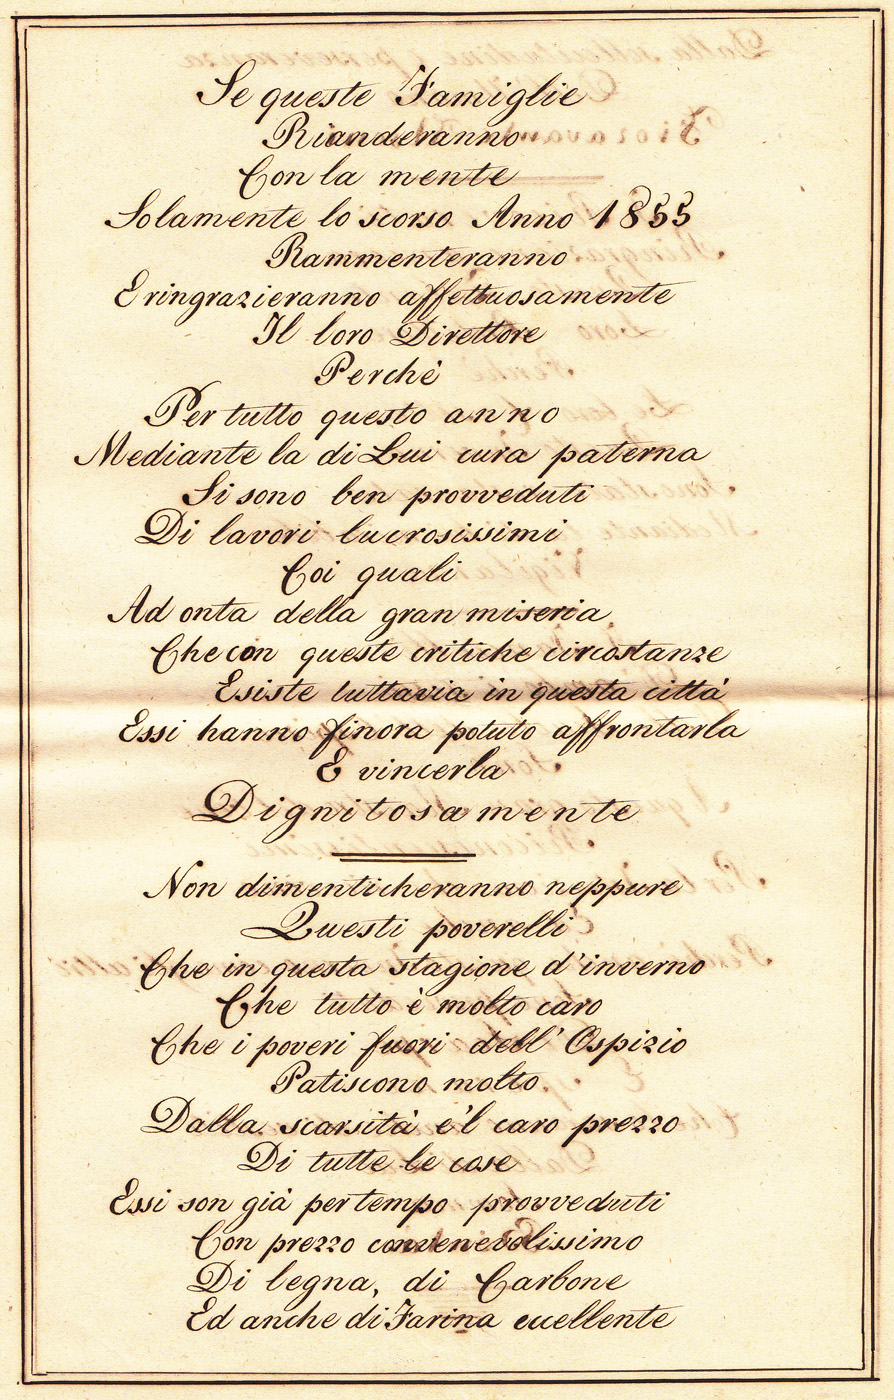 Se queste Famiglie
Rianderanno
Con la mente
Solamente lo scorso Anno 1855
Rammenteranno
E ringrazieranno affettuosamente
Il loro Direttore
Perchè
Per tutto questo anno
Mediante la di Lui cura paterna
Si sono ben provveduti
Di lavori lucrosissimi
Coi quali
Ad onta della gran miseria
Che con queste critiche circostanze
Esiste tuttavia in questa città
Essi hanno finora potuto affrontarla
E vincerla
Dignitosamente
Non dimenticheranno neppure
Questi poverelli
Che in questa stagione d'inverno
Che tutto è molto caro
Che i poveri fuori dell' Ospizio
Patiscono molto
Dalla scarsità e'l caro prezzo
Di tutte le cose
Essi son già per tempo provveduti
Con prezzo convenevolissimo
Di legna, di Carbone
Ed anche di Farina eccellente